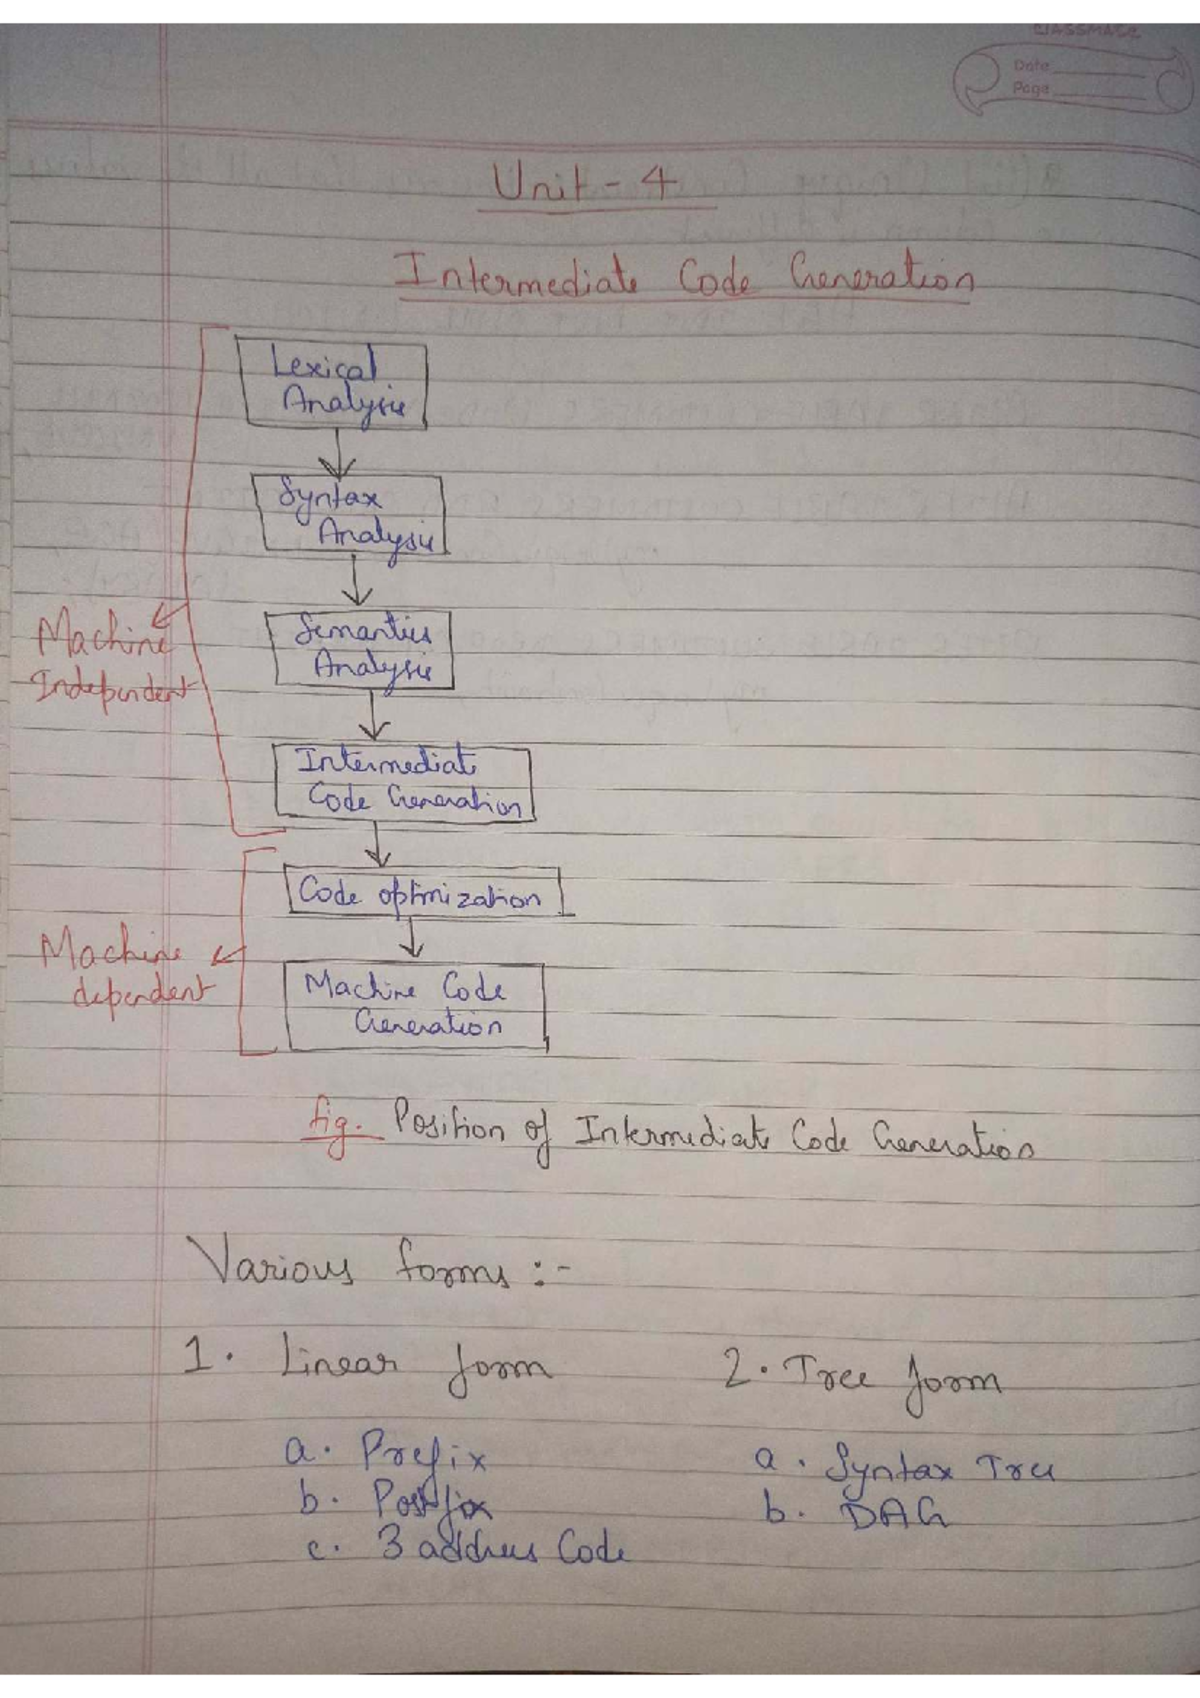 classmate
Date
Page
Unit - 4
Intermediate Code Generation
Lexical
Analysis
Syntax
Analysis
Semantics
Analysis
Machine
Independent
Intermediate
Code Generation
Code optimization
Machine
dependent
Machine Code
Generation
fig. Position of Intermediate Code Generation
Various forms :-
1. Linear form
2. Tree form
a. Prefix
a. Syntax Tree
b. Postfix
b. DAG
c. 3 address Code